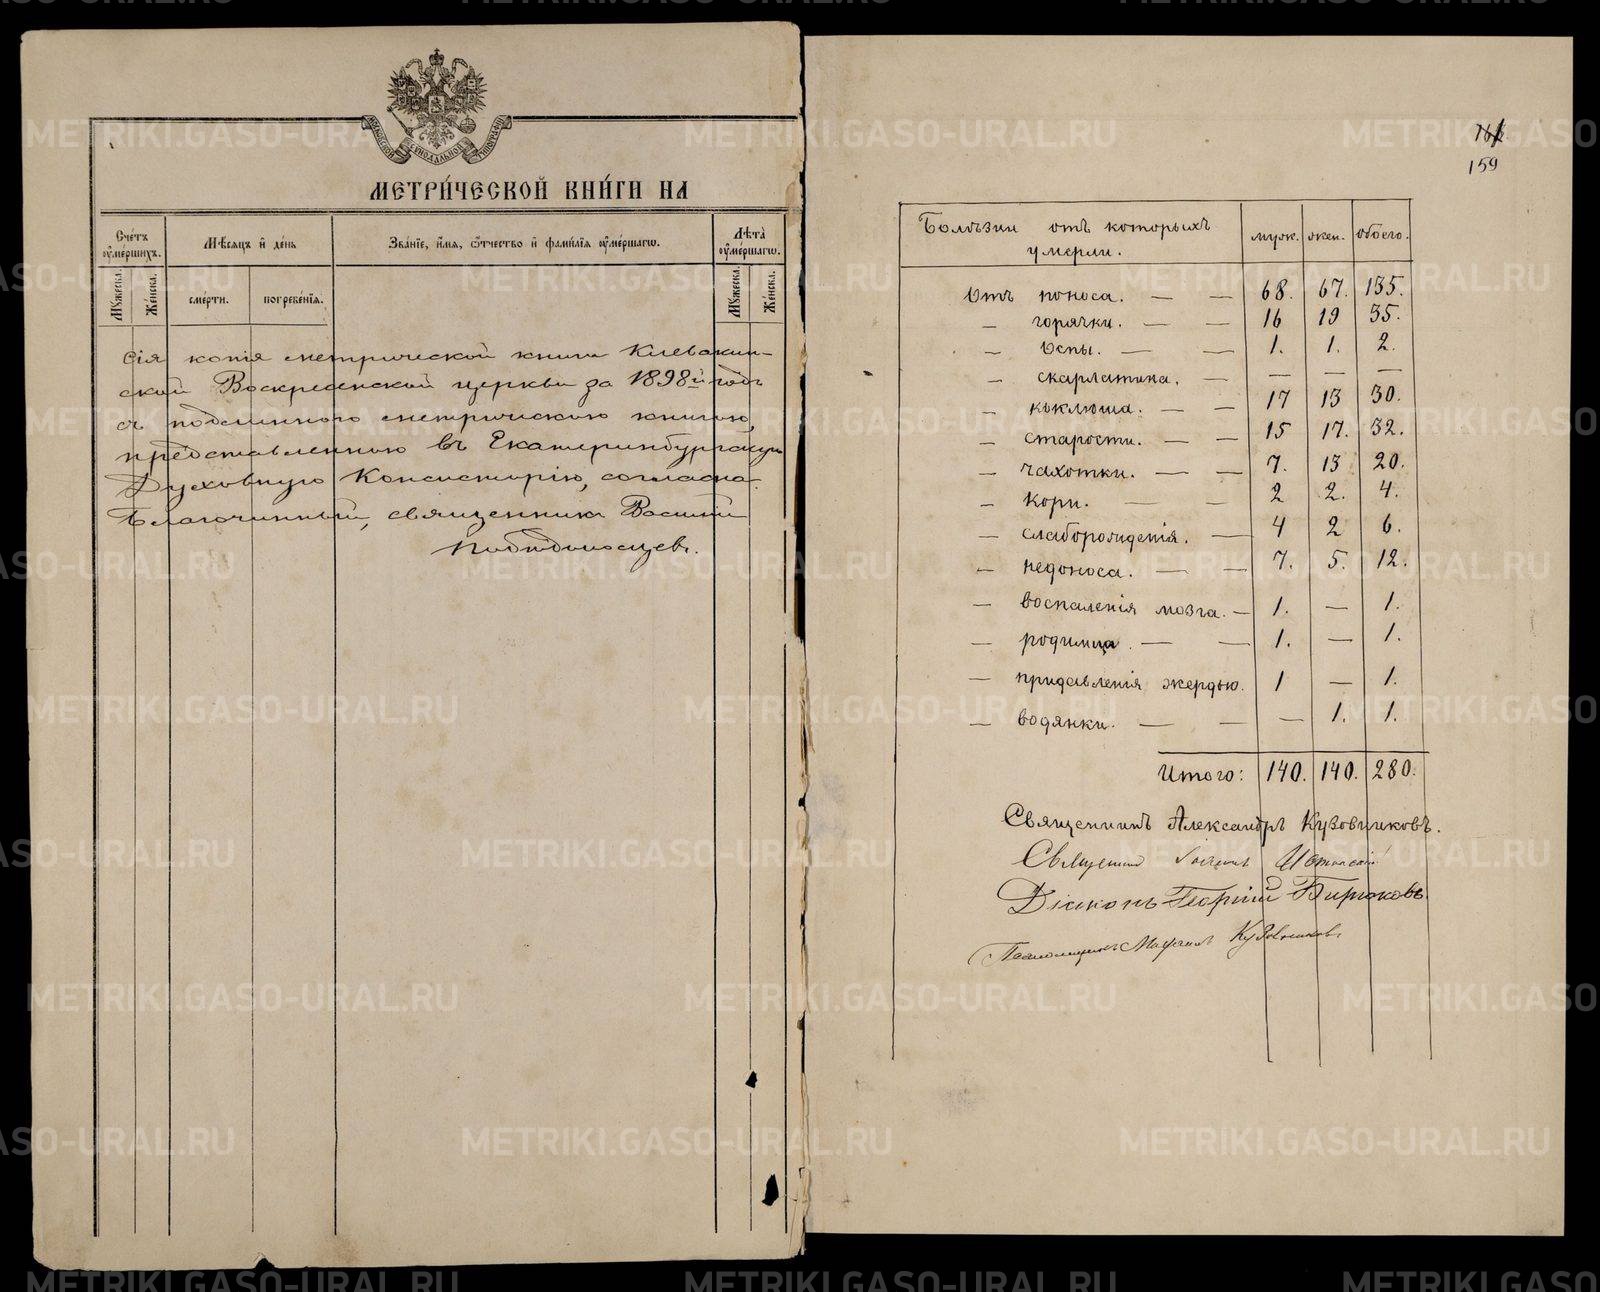 МОСКОВСКОЙ СѴНОДАЛЬНОЙ ТИПОГРАФІИ
МЕТРИ́ЧЕСКОЙ КНИ́ГИ НА
Сче́тъ ᲂумершихъ.
Мѣ́сяцъ и де́нь
Зва́ніе, и́мя, ѻтчество и фами́лія ᲂуме́ршагѡ.
Лѣта̀ ᲂуме́ршагѡ.
Мꙋ́жеска.
Же́нска.
сме́рти.
погребе́нія.
Мꙋ́жеска.
Же́нска.
Сія копія метрической книги Клевакин-
ской Воскресенской церкви за 1898й годъ
съ подлинною метрическою книгою,
представленною въ Екатеринбургскую
Духовную Консисторію, согласна.
Благочинный, священникъ Василій
Побѣдоносцевъ.
159
Болѣзни отъ которыхъ умерли.
муж.
жен.
обоего.
Отъ поноса. — — 68. 67. 135.
— горячки. — — 16 19 35.
— Оспы. — — 1. 1. 2.
— скарлатина. — — — —
— коклюша. — — 17 13 30.
— старости. — — 15 17. 32.
— чахотки. — — 7. 13 20.
— кори. — — 2 2. 4.
— слаборожденія. — 4 2 6.
— недоноса. — — 7. 5. 12.
— воспаленія мозга. — 1. — 1.
— родимца. — — 1. — 1.
— придавленія жердью. 1 — 1.
— водянки. — — — 1. 1.
Итого: 140. 140. 280.
Священникъ Александръ Кузовниковъ.
Священникъ Іоаннъ
Діаконъ Георгій Бирюковъ.
Псаломщикъ Кузовниковъ
METRIKI.GASO-URAL.RU